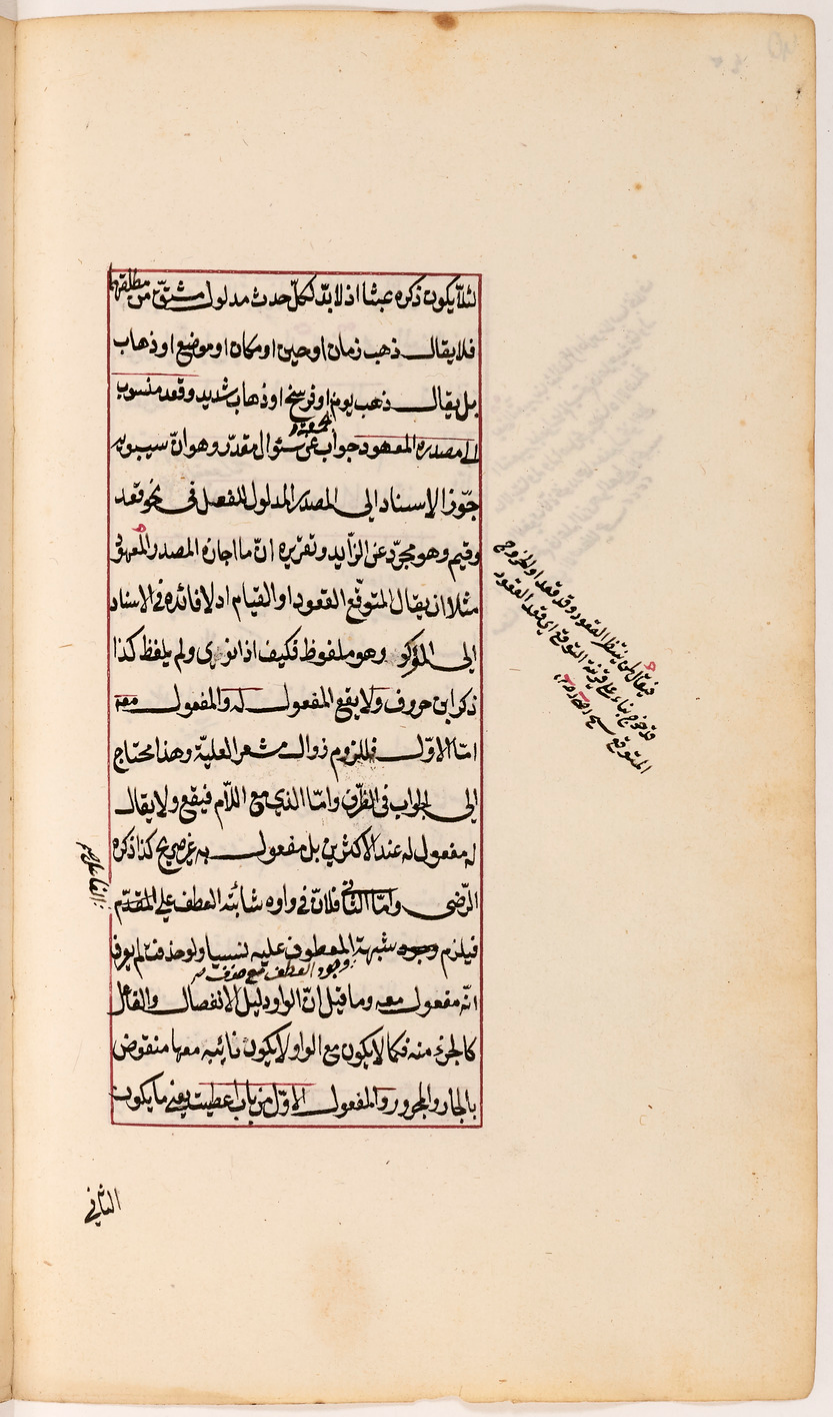 لئلّا يكون ذكره عبثا اذ لا بدّ لكلّ حدث مدلول مشتقّ من مطلقها
فلا يقال ذهب زمان او حين او مكان او موضع او ذهاب
بل يقال ذهب يوم او فرسخ او ذهاب شديد وقعد منسوب
الى مصدره المعهود جواب عن سئوال مقدّر وهو انّ سيبويه
جوّز الاسناد الى المصدر المدلول للفعل فى نحو قعد
وقيم وهو مجرّد عن الزّايد وتقريره انّ ما اجازه المصدر المعهود
مثلا ان يقال المتوقّع القعود او القيام اذ لا فائده فى الاسناد
الى المؤكّد وهو ملفوظ فكيف اذا نوى ولم يلفظ كذا
ذكر ابن خروف ولا يقع المفعول له والمفعول معه
امّا الاوّل فللزوم زوال مشعر العليّة وهذا محتاج
الى الجواب فى الفرّق وامّا الذي مع اللّام فيقع ولا يقال
له مفعول له عند الاكثرين بل مفعول به غير صريح كذا ذكره
الرّضى وامّا الثانى فلانّ فى واوه شائبة العطف على المقدّم
فيلزم شبهة المعطوف عليه نسيا ولو حذفت لم يعرف
وجود العطف مع حذف
انّه مفعول معه وما قيل انّ الواو دليل الانفصال والفاعل
كالجزء منه فكما لا يكون مع الواو لا يكون نائبه معها منقوض
بالجار والمجرور والمفعول الاوّل من باب اعطيت يعنى ما يكون
الثانى
فيقال لمن ينتظر القعود وقد قعد او الخروج
قد خرج بناء على قرينة التوقع اى قعد القعود
المتوقع
الفاعل صح